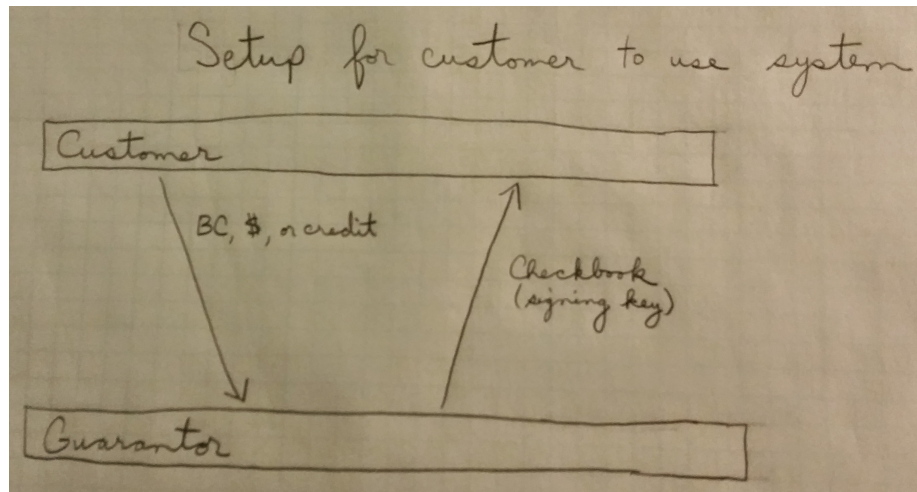 Setup for customer to use system
Customer
BC, $, or credit
Checkbook
(signing key)
Guarantor